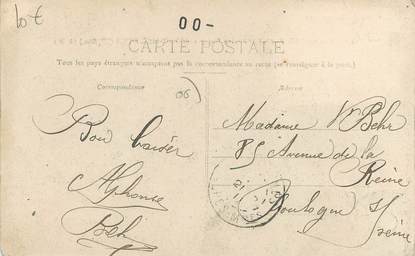 10 €
00-
CARTE POSTALE
Tous les pays étrangers n'acceptent pas la correspondance au recto (se renseigner à la poste).
Correspondance
Adresse
Bon baiser
Alphonse
Beh
Madame Behr
85 Avenue de la
Reine
Boulogne s/
Seine